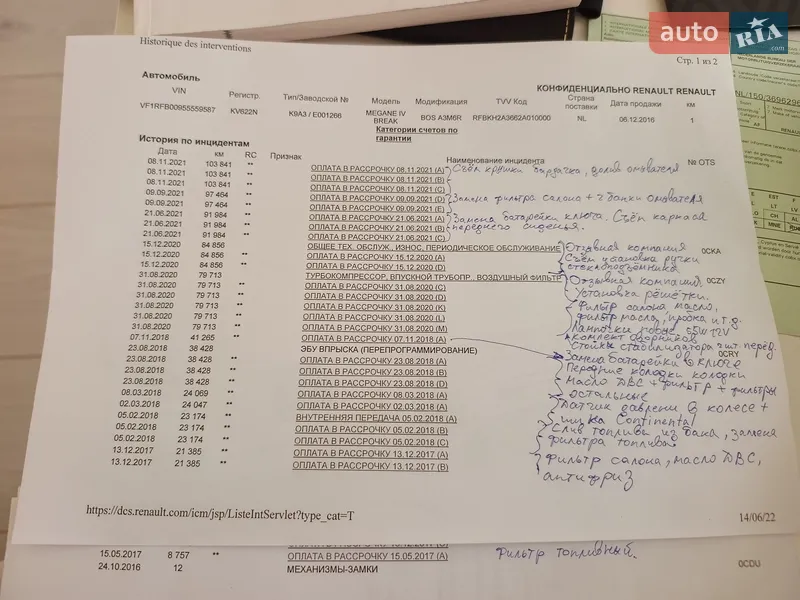 auto RIA .com
Historique des interventions
Стр. 1 из 2
Автомобиль
КОНФИДЕНЦИАЛЬНО RENAULT RENAULT
VIN Регистр. Тип/Заводской № Модель Модификация TVV Код Страна поставки Дата продажи км
VF1RFB00955559587 KV622N K9A3 / E001266 MEGANE IV BREAK BOS A3M6R RFBKH2A3662A010000 NL 06.12.2016 1
Категории счетов по гарантии
История по инцидентам
Дата км RC Признак Наименование инцидента № OTS
08.11.2021 103 841 ** ОПЛАТА В РАССРОЧКУ 08.11.2021 (A) Съём крышки бардачка, долив омывателя
08.11.2021 103 841 ** ОПЛАТА В РАССРОЧКУ 08.11.2021 (B)
08.11.2021 103 841 ** ОПЛАТА В РАССРОЧКУ 08.11.2021 (C)
09.09.2021 97 464 ** ОПЛАТА В РАССРОЧКУ 09.09.2021 (D) Замена фильтра салона + 2 банки омывателя
09.09.2021 97 464 ** ОПЛАТА В РАССРОЧКУ 09.09.2021 (E)
21.06.2021 91 984 ** ОПЛАТА В РАССРОЧКУ 21.06.2021 (A) Замена батарейки ключа. Съём каркаса
21.06.2021 91 984 ** ОПЛАТА В РАССРОЧКУ 21.06.2021 (B) переднего сиденья.
21.06.2021 91 984 ** ОПЛАТА В РАССРОЧКУ 21.06.2021 (C)
15.12.2020 84 856 ОБЩЕЕ ТЕХ. ОБСЛУЖ., ИЗНОС, ПЕРИОДИЧЕСКОЕ ОБСЛУЖИВАНИЕ Отзывная компания 0CKA
15.12.2020 84 856 ** ОПЛАТА В РАССРОЧКУ 15.12.2020 (A) Съём установка ручки
15.12.2020 84 856 ** ОПЛАТА В РАССРОЧКУ 15.12.2020 (D) стеклоподъемника
31.08.2020 79 713 ТУРБОКОМПРЕССОР, ВПУСКНОЙ ТРУБОПР., ВОЗДУШНЫЙ ФИЛЬТР Отзывная компания. 0CZY
31.08.2020 79 713 ** ОПЛАТА В РАССРОЧКУ 31.08.2020 (C) Установка решётки.
31.08.2020 79 713 ** ОПЛАТА В РАССРОЧКУ 31.08.2020 (D) Фильтр салона масло,
31.08.2020 79 713 ** ОПЛАТА В РАССРОЧКУ 31.08.2020 (K) фильтр масла, пробка и т.д.
31.08.2020 79 713 ** ОПЛАТА В РАССРОЧКУ 31.08.2020 (L) Лампочки новые 55W 12V
31.08.2020 79 713 ** ОПЛАТА В РАССРОЧКУ 31.08.2020 (M) комплект дворников
07.11.2018 41 265 ** ОПЛАТА В РАССРОЧКУ 07.11.2018 (A) Стойки стабилизатора 2 шт перед.
23.08.2018 38 428 ЭБУ ВПРЫСКА (ПЕРЕПРОГРАММИРОВАНИЕ) 0CRY
23.08.2018 38 428 ** ОПЛАТА В РАССРОЧКУ 23.08.2018 (A) Замена батарейки в ключе
23.08.2018 38 428 ** ОПЛАТА В РАССРОЧКУ 23.08.2018 (B) Передние колодки колодки
23.08.2018 38 428 ** ОПЛАТА В РАССРОЧКУ 23.08.2018 (D) Масло ДВС + фильтр + фильтры
08.03.2018 24 069 ** ОПЛАТА В РАССРОЧКУ 08.03.2018 (A) остальные
02.03.2018 24 047 ** ОПЛАТА В РАССРОЧКУ 02.03.2018 (A) Датчик давлени в колесе +
05.02.2018 23 174 ** ВНУТРЕННЯЯ ПЕРЕДАЧА 05.02.2018 (A) шина Continental
05.02.2018 23 174 ** ОПЛАТА В РАССРОЧКУ 05.02.2018 (B) Слив топлива из бака, замена
05.02.2018 23 174 ** ОПЛАТА В РАССРОЧКУ 05.02.2018 (C) фильтра топлива.
13.12.2017 21 385 ** ОПЛАТА В РАССРОЧКУ 13.12.2017 (A) Фильтр салона, масло ДВС,
13.12.2017 21 385 ** ОПЛАТА В РАССРОЧКУ 13.12.2017 (B) антифриз
https://dcs.renault.com/icm/jsp/ListeIntServlet?type_cat=T
14/06/22
15.05.2017 8 757 ** ОПЛАТА В РАССРОЧКУ 15.05.2017 (A) Фильтр топливный.
24.10.2016 12 МЕХАНИЗМЫ-ЗАМКИ 0CDU